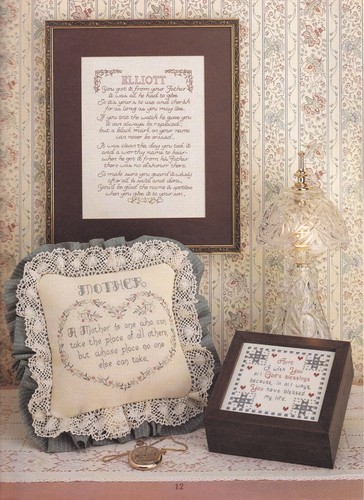 ELLIOTT
You got it from your Father
It was all he had to give
So it's yours to use and cherish
for as long as you may live.
If you lose the watch he gave you
It can always be replaced,
but a black mark on your name
can never be erased.
It was clean the day you took it
and a worthy name to bear
when he got it from his Father
there was no dishonor there.
So make sure you guard it wisely
after all is said and done,
You'll be glad the name is spotless
when you give it to your son.
MOTHER
A Mother is one who can
take the place of all others,
but whose place no one
else can take.
I wish You
all God's blessings
because, in all ways,
You have blessed
my life.
12